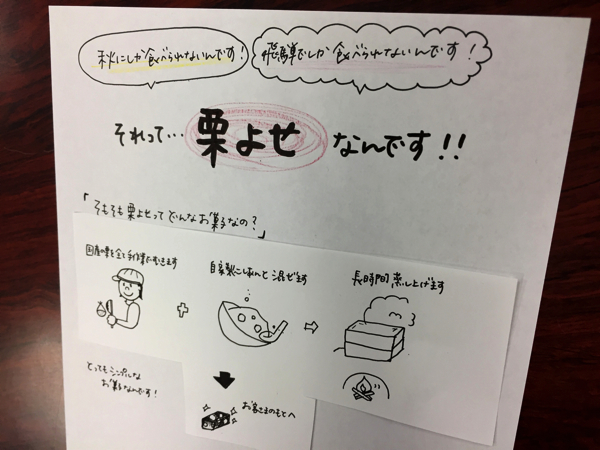 秋にしか食べられないんです!
飛騨でしか食べられないんです!
それって… 栗よせ なんです!!
「そもそも栗よせってどんなお菓子なの?」
国産の栗を全て手作業でむきます
自家製こしあんと混ぜます
長時間蒸し上げます
とってもシンプルな
お菓子なんです!
お客さまのもとへ